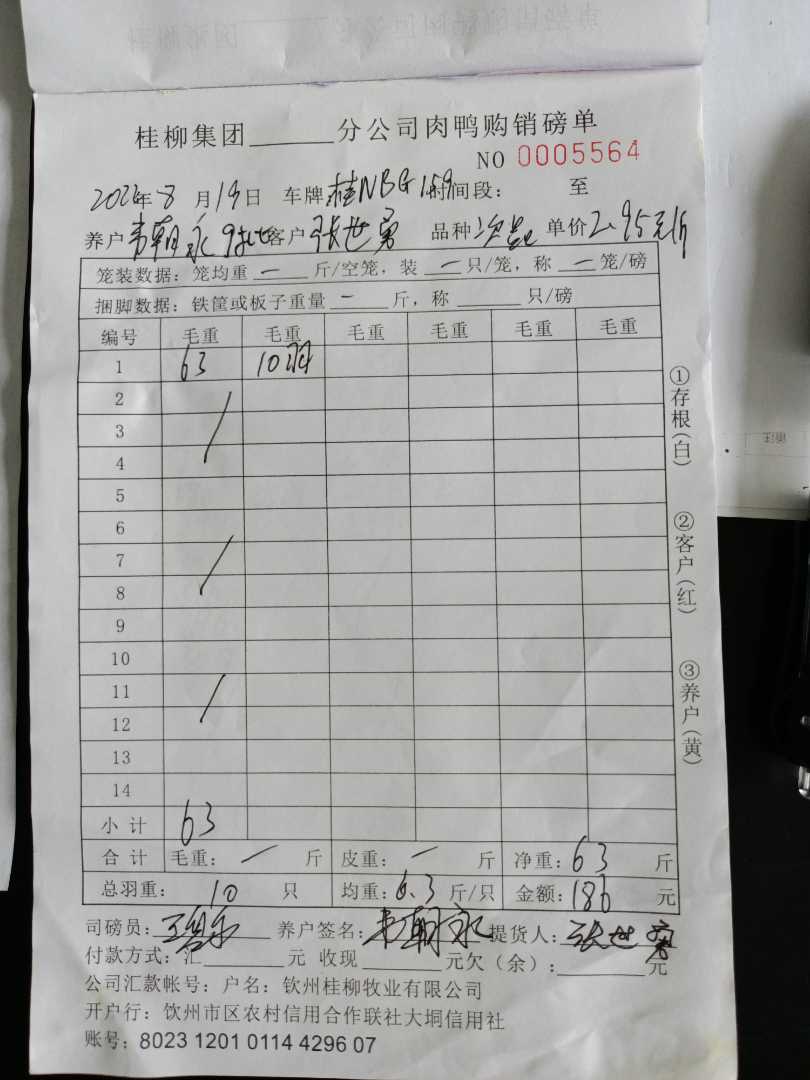 桂柳集团______分公司肉鸭购销磅单
NO 0005564
年8月19日 车牌:桂NBG159 时间段: 至
养户 韦朝永 客户 张世勇 品种 单价 2.95元/斤
笼装数据: 笼均重 一 斤/空笼, 装 一 只/笼, 称 一 笼/磅
捆脚数据: 铁筐或板子重量 一 斤, 称 ______ 只/磅
编号 毛重 毛重 毛重 毛重 毛重 毛重
1 63 10羽
2
3
4
5
6
7
8
9
10
11
12
13
14
小 计 63
合 计 毛重: 一 斤 皮重: 一 斤 净重: 63 斤
总羽重: 10 只 均重: 6.3 斤/只 金额: 186 元
司磅员: 养户签名: 韦朝永 提货人: 张世勇
付款方式: 汇______元 收现______元欠(余):______元
公司汇款帐号: 户名: 钦州桂柳牧业有限公司
开户行: 饮州市区农村信用合作联社大垌信用社
账号: 8023 1201 0114 4296 07
①存根(白)
②客户(红)
③养户(黄)